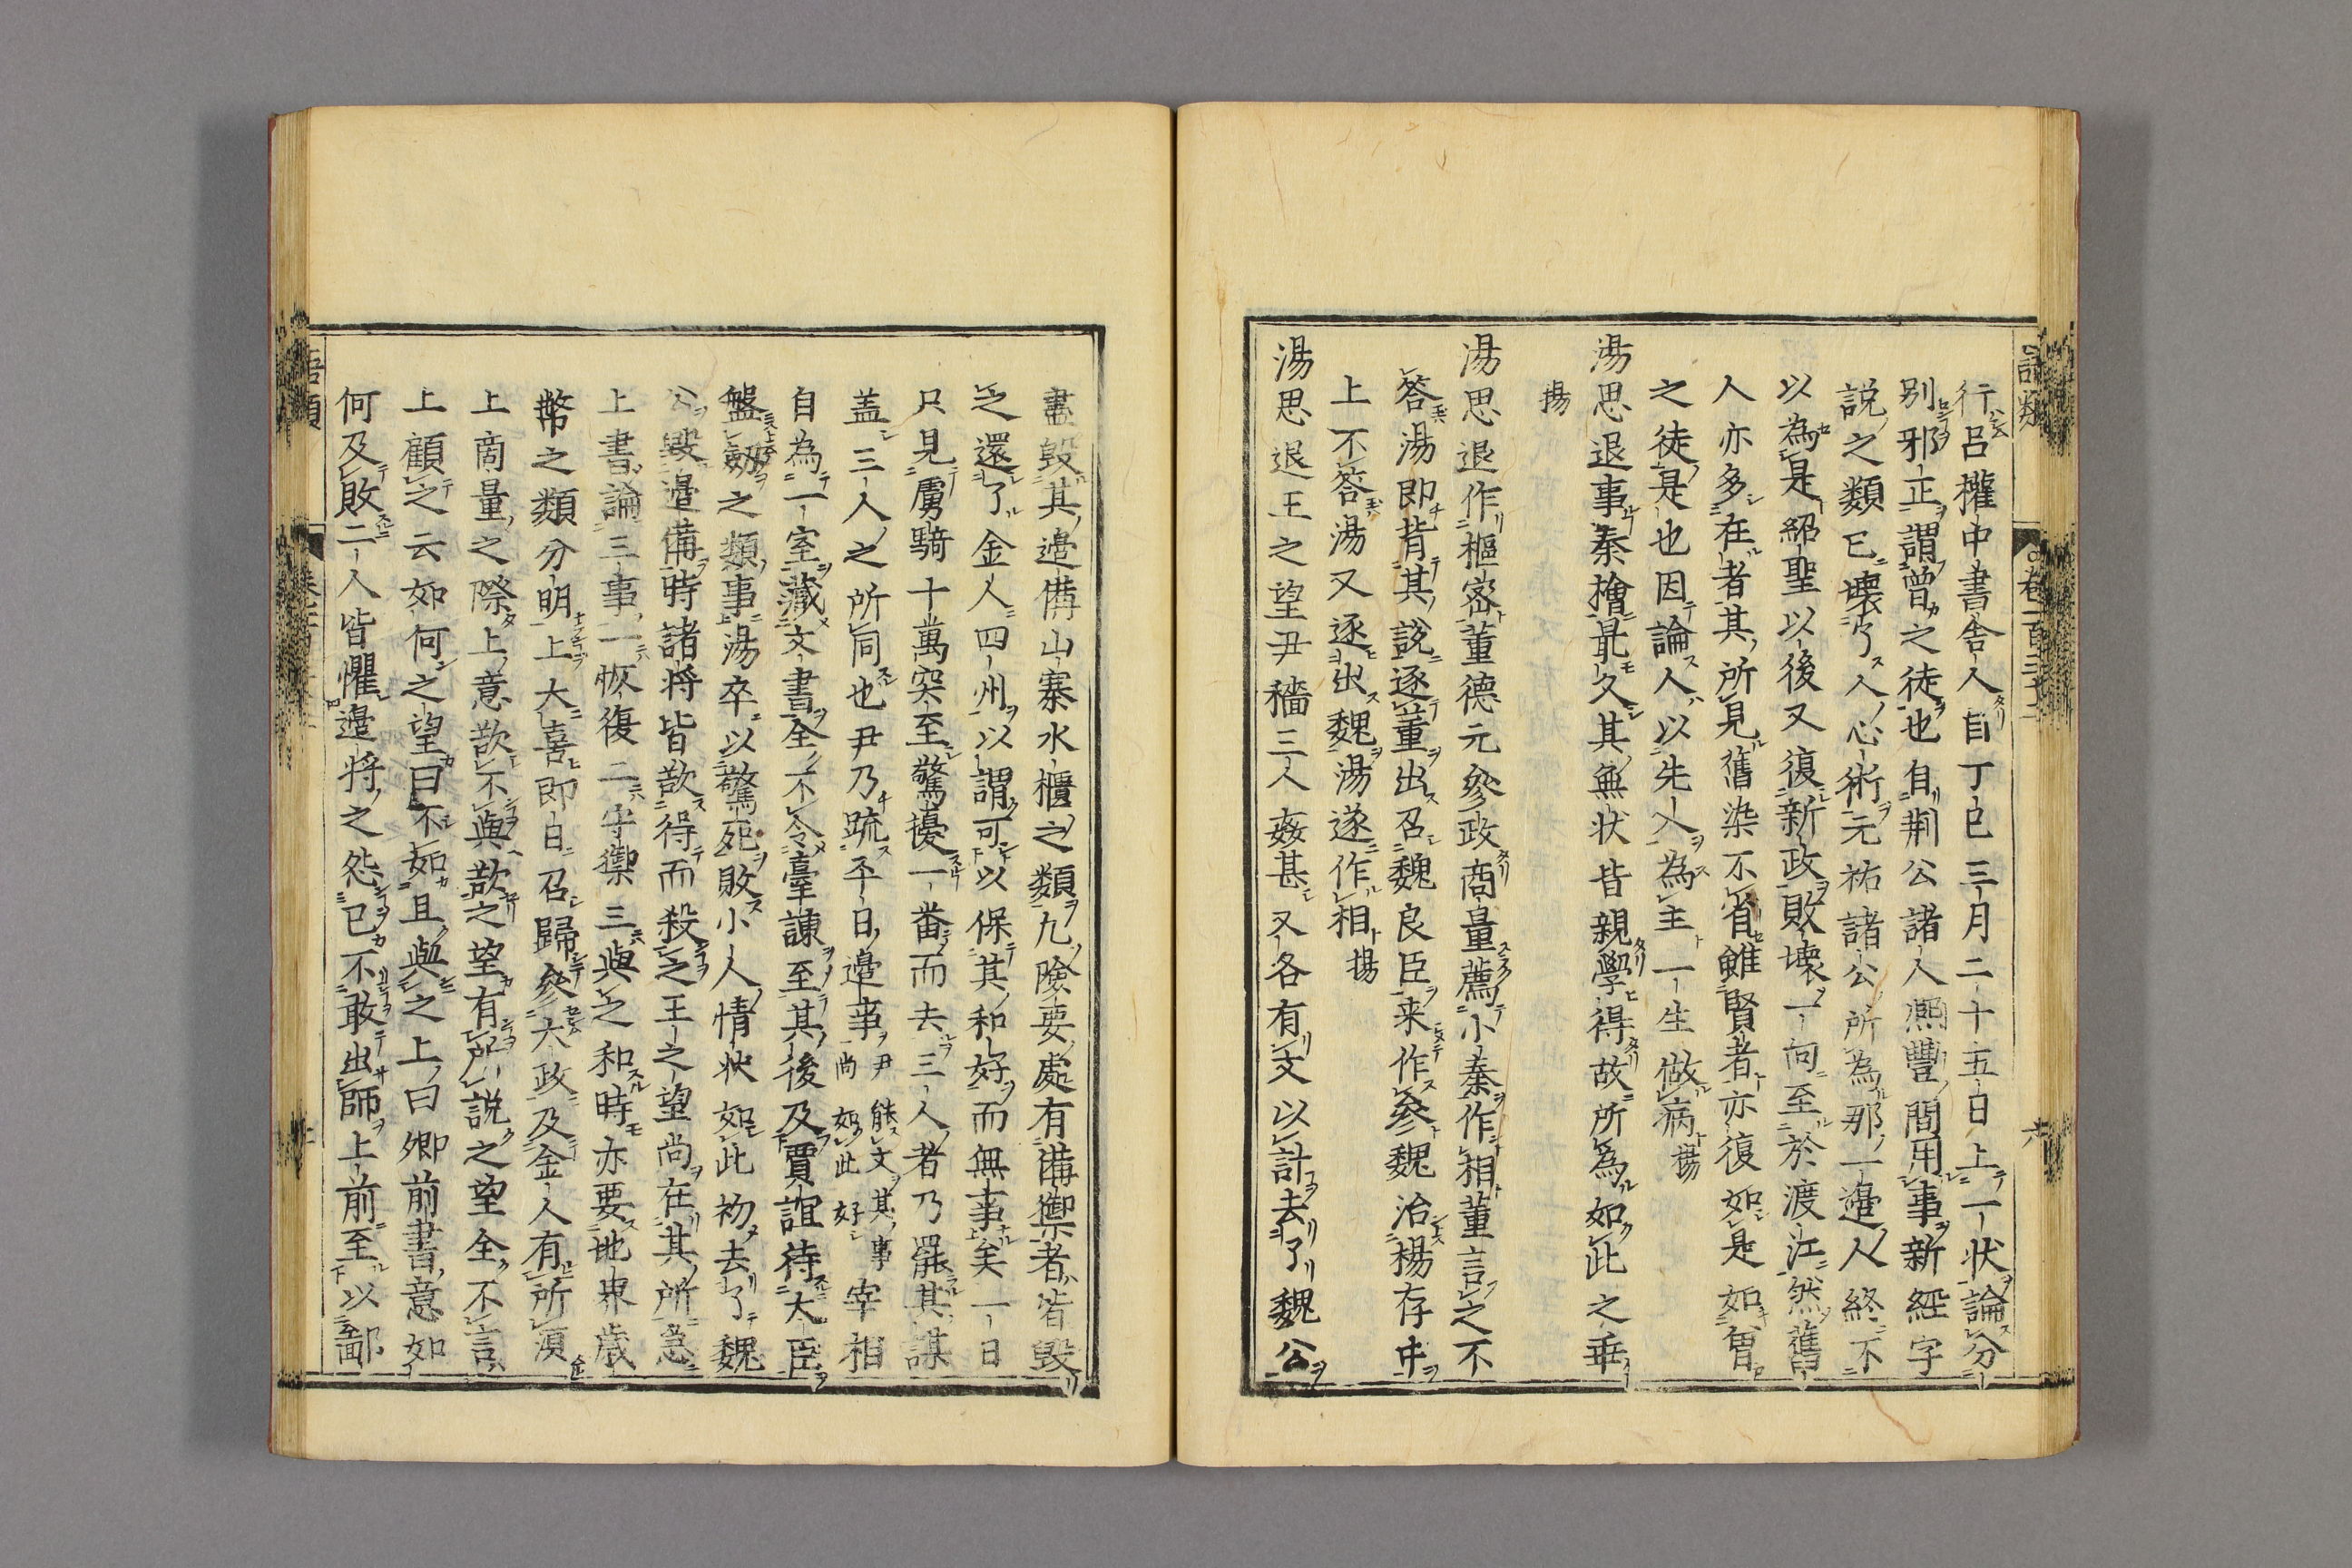 語類 卷一百三十一 十六
行呂權中書舍人自丁巳三月二十五日上一狀論分
別邪正謂曾之徒也自荆公諸人熈豐間用事新經字
說之類已壞了人心術元祐諸公所為那一邉人終不
以為是紹聖以後又復新政敗壞一向至於渡江然舊
人亦多在者其所見舊染不省雖賢者亦復如是如曾
之徒是也因論人以先入為主一生做病揚
湯思退事秦檜最久其無状皆親學得故所為如此之垂
揚
湯思退作樞宻董德元參政商量薦小秦作相董言之不
答湯即背其說逐董出召魏良臣来作參魏治楊存中
上不答湯又逐出魏湯遂作相揚
湯思退王之望尹穡三人姦甚又各有文以計去了魏公
盡毀其邉備山寨水櫃之類凡險要處有備禦者皆毀
之還了金人四州以謂可以保其和好而無事矣一日
只見虜騎十萬突至驚擾一番而去三人者乃罷其謀
盖三人之所同也尹乃䟽平日邉事尹能文其事尚如此好宰相
自為一室藏文書全不令臺諫至其後及賈誼待大臣
盤劒之類事湯卒以驚死敗小人情狀如此初去了魏
公毀邉備時諸將皆欲得而殺之王之望尚在其所急
上書論三事一恢復二守禦三與之和時亦要地界歲
幣之類分明上大喜即日召歸參大政及金人有所湏
上商量之際上意欲不與欲之望有所說之望全不言
上顧之云如何之望曰不如且與之上曰卿前書意如
何及敗二人皆懼邉将之怨已不敢出師上前至以鄙
語類